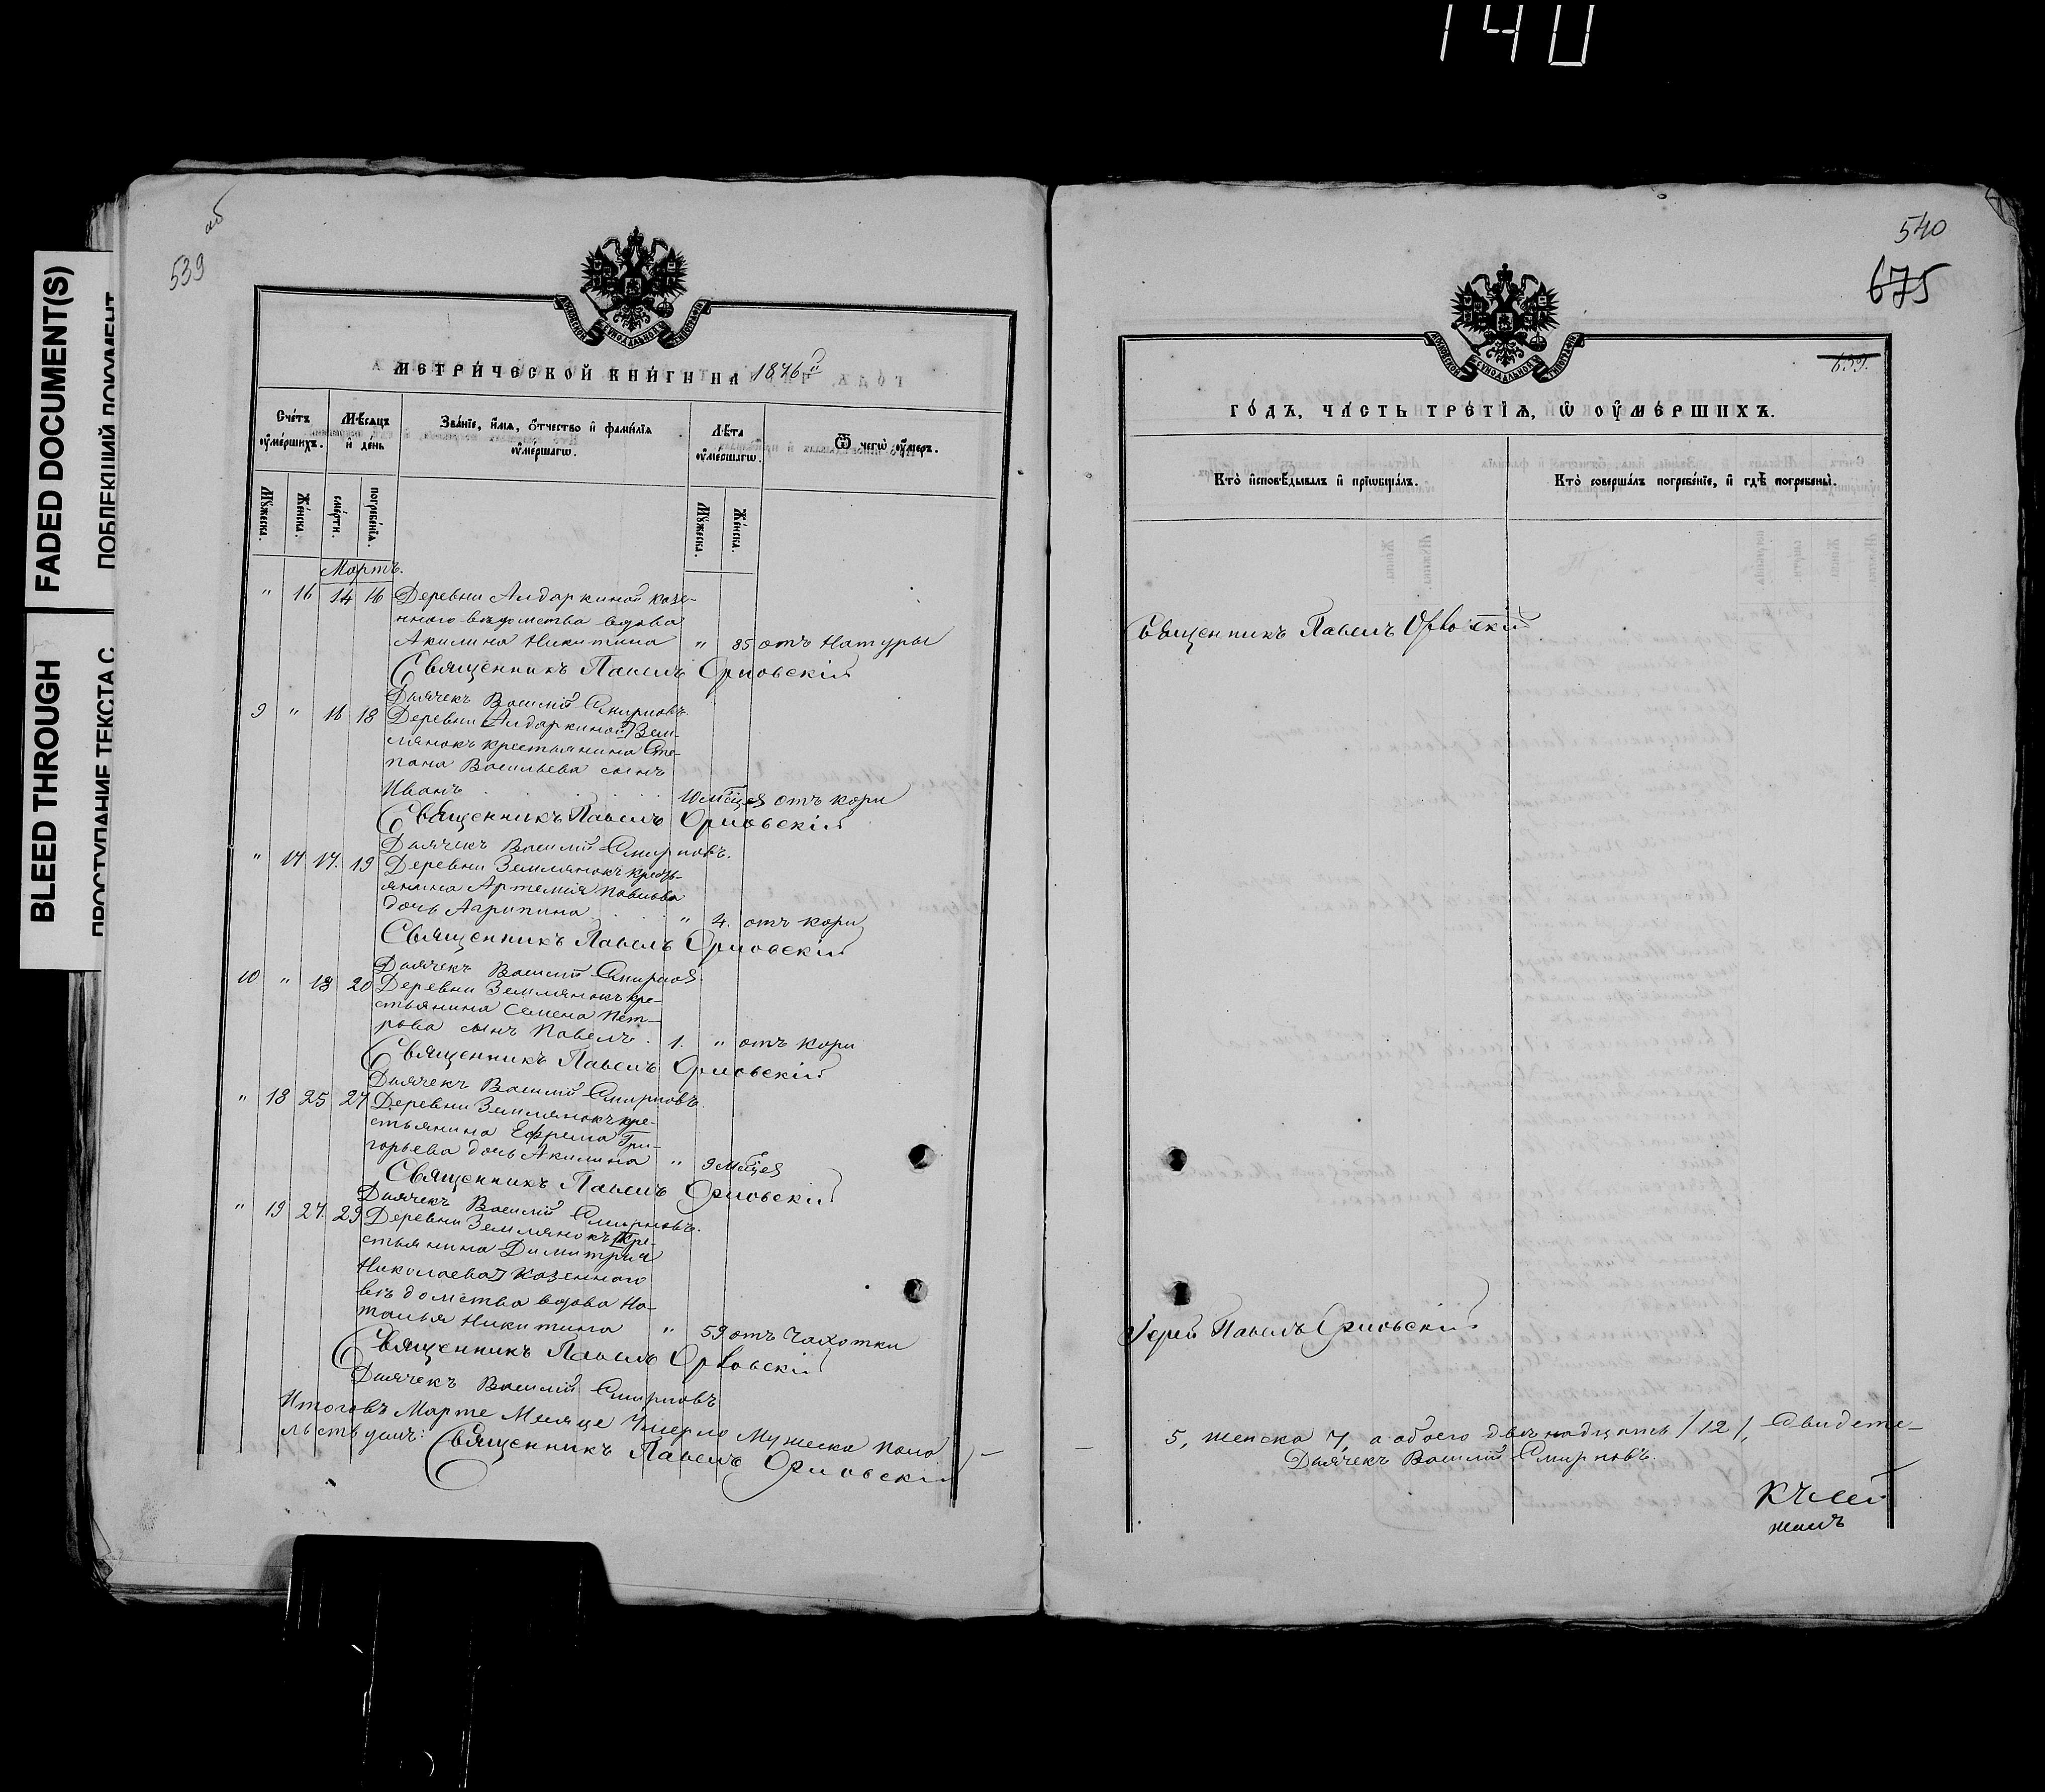 140
FADED DOCUMENT(S)
ПОБЛЕКШИЙ ДОКУМЕНТ
BLEED THROUGH
ПРОСТУПАНИЕ ТЕКСТА С
539 об
МЕТРИЧЕСКОЙ КНИГИ НА 1876й
Счетъ оумершихъ.
Мѣсяцъ и день
Званіе, имя, отчество и фамилія оумершагѡ.
Лѣта оумершагѡ.
Ѿ чегѡ оумеръ.
Мꙋжеска.
Женска.
смерти.
погребенія.
Мꙋжеска.
Женска.
Мартъ.
" 16 14 16 Деревни Алдаркиной казе-
ннаго вѣдомства вдова
Акилина Никитина " 85 отъ Натуры
Священникъ Павелъ Орловскій
Дьячекъ Василій Смирновъ.
9 " 16 18 Деревни Алдаркиной Зем-
лянокъ крестьянина Сте-
пана Васильева сынъ
Иванъ 10 мѣсяц отъ кори
Священникъ Павелъ Орловскій
Дьячекъ Василій Смирновъ.
" 17 17. 19 Деревни Землянокъ кресть-
янина Артемія Павлова
дочь Агрипина " 4. отъ кори
Священникъ Павелъ Орловскій
Дьячекъ Василій Смирнов
10 " 18 20 Деревни Землянокъ кре-
стьянина Семена Пет-
рова сынъ Павелъ. 1. " отъ кори
Священникъ Павелъ Орловскій
Дьячекъ Василій Смирновъ
" 18 25 27 Деревни Землянокъ кре-
стьянина Ефрема Гри-
горьева дочь Акилина " 9 мѣсяц
Священникъ Павелъ Орловскій
Дьячекъ Василій Смирновъ.
" 19 27. 29 Деревни Землянокъ Кре-
стьянина Димитрія
Николаева казеннаго
вѣдомства вдова На-
талья Никитина " 59 отъ Чахотки
Священникъ Павелъ Орловскій
Дьячекъ Василій Смирновъ
Итого въ Марте Месяце Умерло Мужеска пола
льствуемъ: Священникъ Павелъ Орловскій
540
675
639.
ГОДЪ, ЧАСТЬ ТРЕТІЯ, Ѡ ОУМЕРШИХЪ.
Кто исповѣдывалъ и пріѡбщалъ.
Кто совершалъ погребеніе, и гдѣ погребены.
Священникъ Павелъ Орловскій
Іерей Павелъ Орловскій
5, женска 7, а обоего двѣнадцать /12/, Свидете-
Дьячекъ Василій Смирновъ.